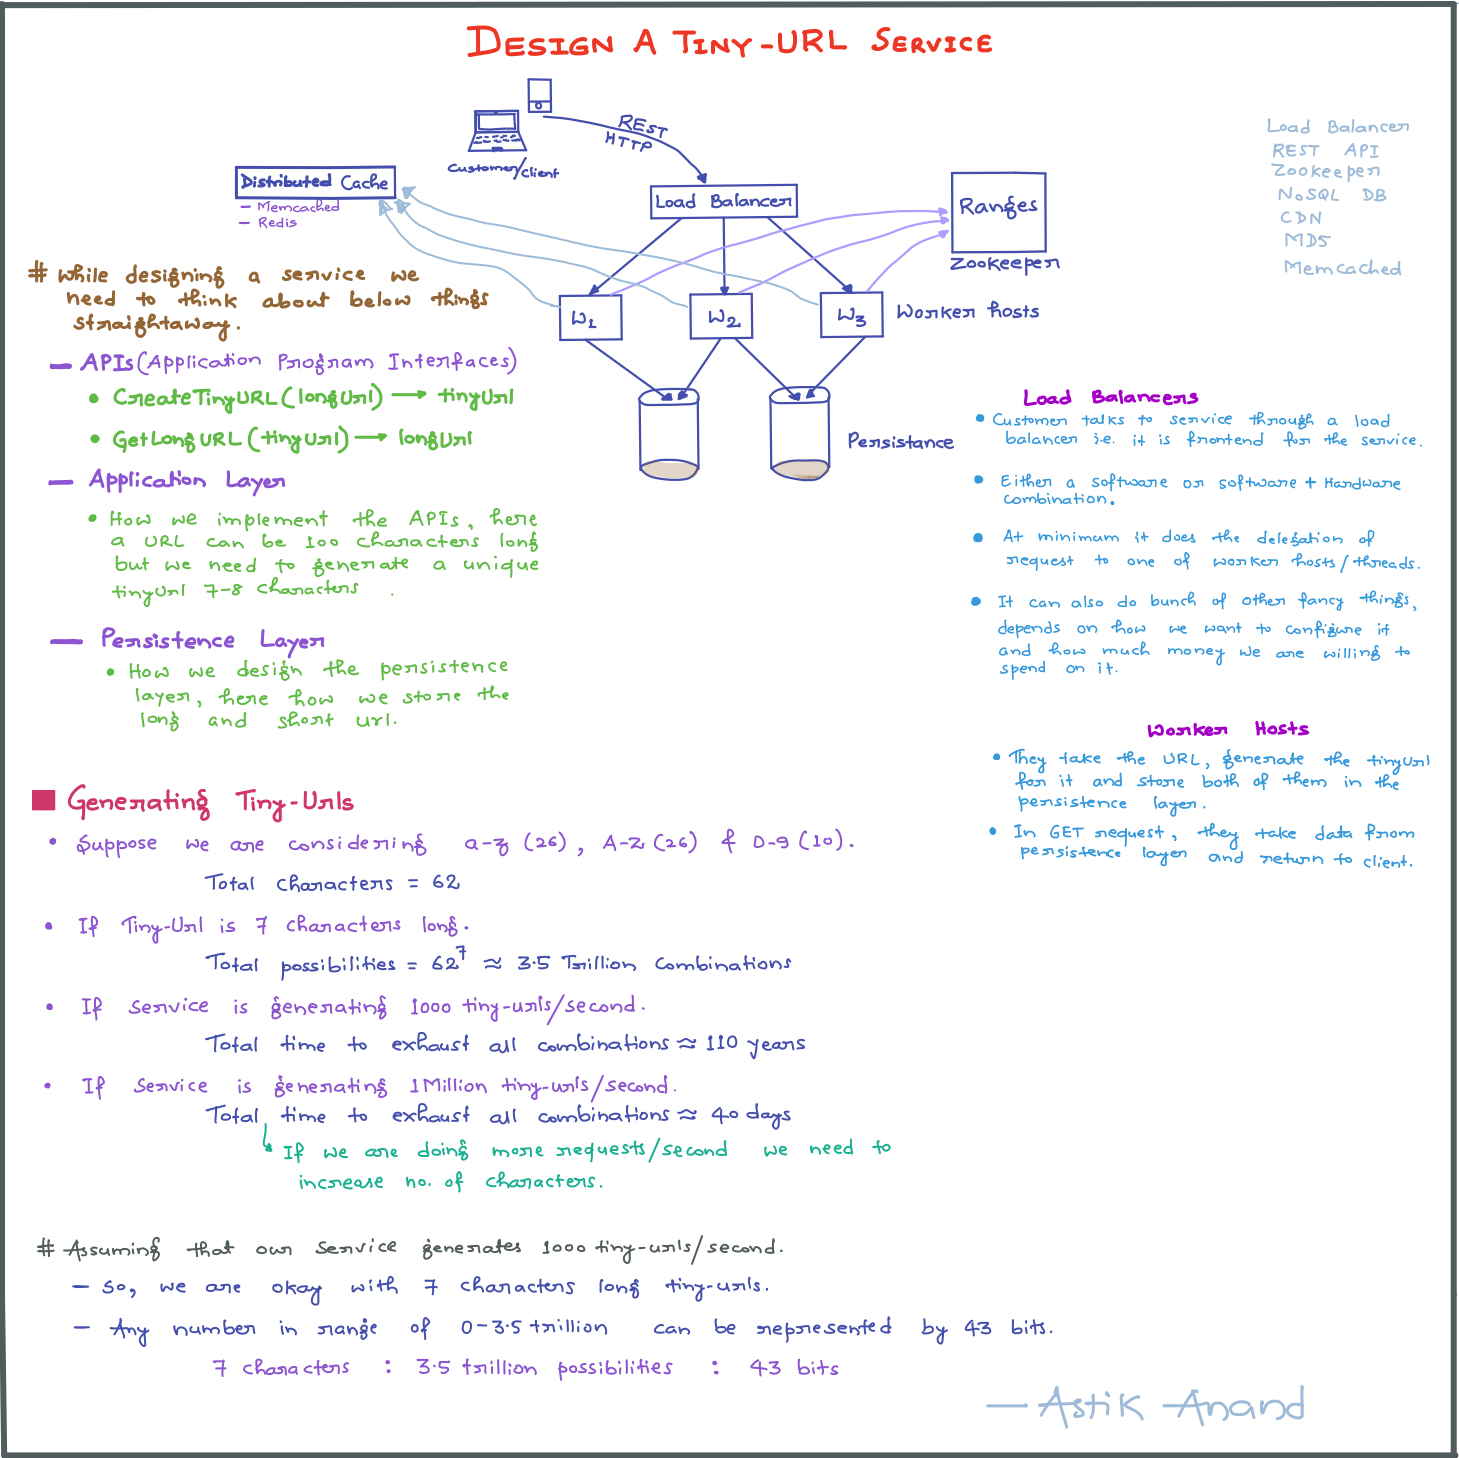 DESIGN A TINY-URL SERVICE
REST
HTTP
Customer/client
Distributed Cache
- Memcached
- Redis
Load Balancer
Ranges
Zookeeper
W1
W2
W3
Worker hosts
Persistance
Load Balancer
REST API
Zookeeper
NoSQL DB
CDN
MD5
Memcached
# While designing a service we
need to think about below things
straightaway.
- APIs (Application Program Interfaces)
• CreateTinyURL(longUrl) → tinyUrl
• GetLongURL(tinyUrl) → longUrl
- Application Layer
• How we implement the APIs, here
a URL can be 100 characters long
but we need to generate a unique
tinyUrl 7-8 characters .
- Persistence Layer
• How we design the persistence
layer, here how we store the
long and short url.
Load Balancers
• Customer talks to service through a load
balancer i.e. it is frontend for the service.
• Either a software or software + Hardware
combination.
• At minimum it does the delegation of
request to one of worker hosts/threads.
• It can also do bunch of other fancy things,
depends on how we want to configure it
and how much money we are willing to
spend on it.
Worker Hosts
• They take the URL, generate the tinyUrl
for it and store both of them in the
persistence layer.
• In GET request, they take data from
persistence layer and return to client.
Generating Tiny-Urls
• Suppose we are considering a-z (26), A-Z (26) & 0-9 (10).
Total characters = 62
• If Tiny-Url is 7 characters long.
Total possibilities = 62^7 ≈ 3.5 Trillion Combinations
• If Service is generating 1000 tiny-urls/second.
Total time to exhaust all combinations ≈ 110 years
• If Service is generating 1 Million tiny-urls/second.
Total time to exhaust all combinations ≈ 40 days
↳ If we are doing more requests/second we need to
increase no. of characters.
# Assuming that our Service generates 1000 tiny-urls/second.
- So, we are okay with 7 characters long tiny-urls.
- Any number in range of 0-3.5 trillion can be represented by 43 bits.
7 characters : 3.5 trillion possibilities : 43 bits
- Astik Anand